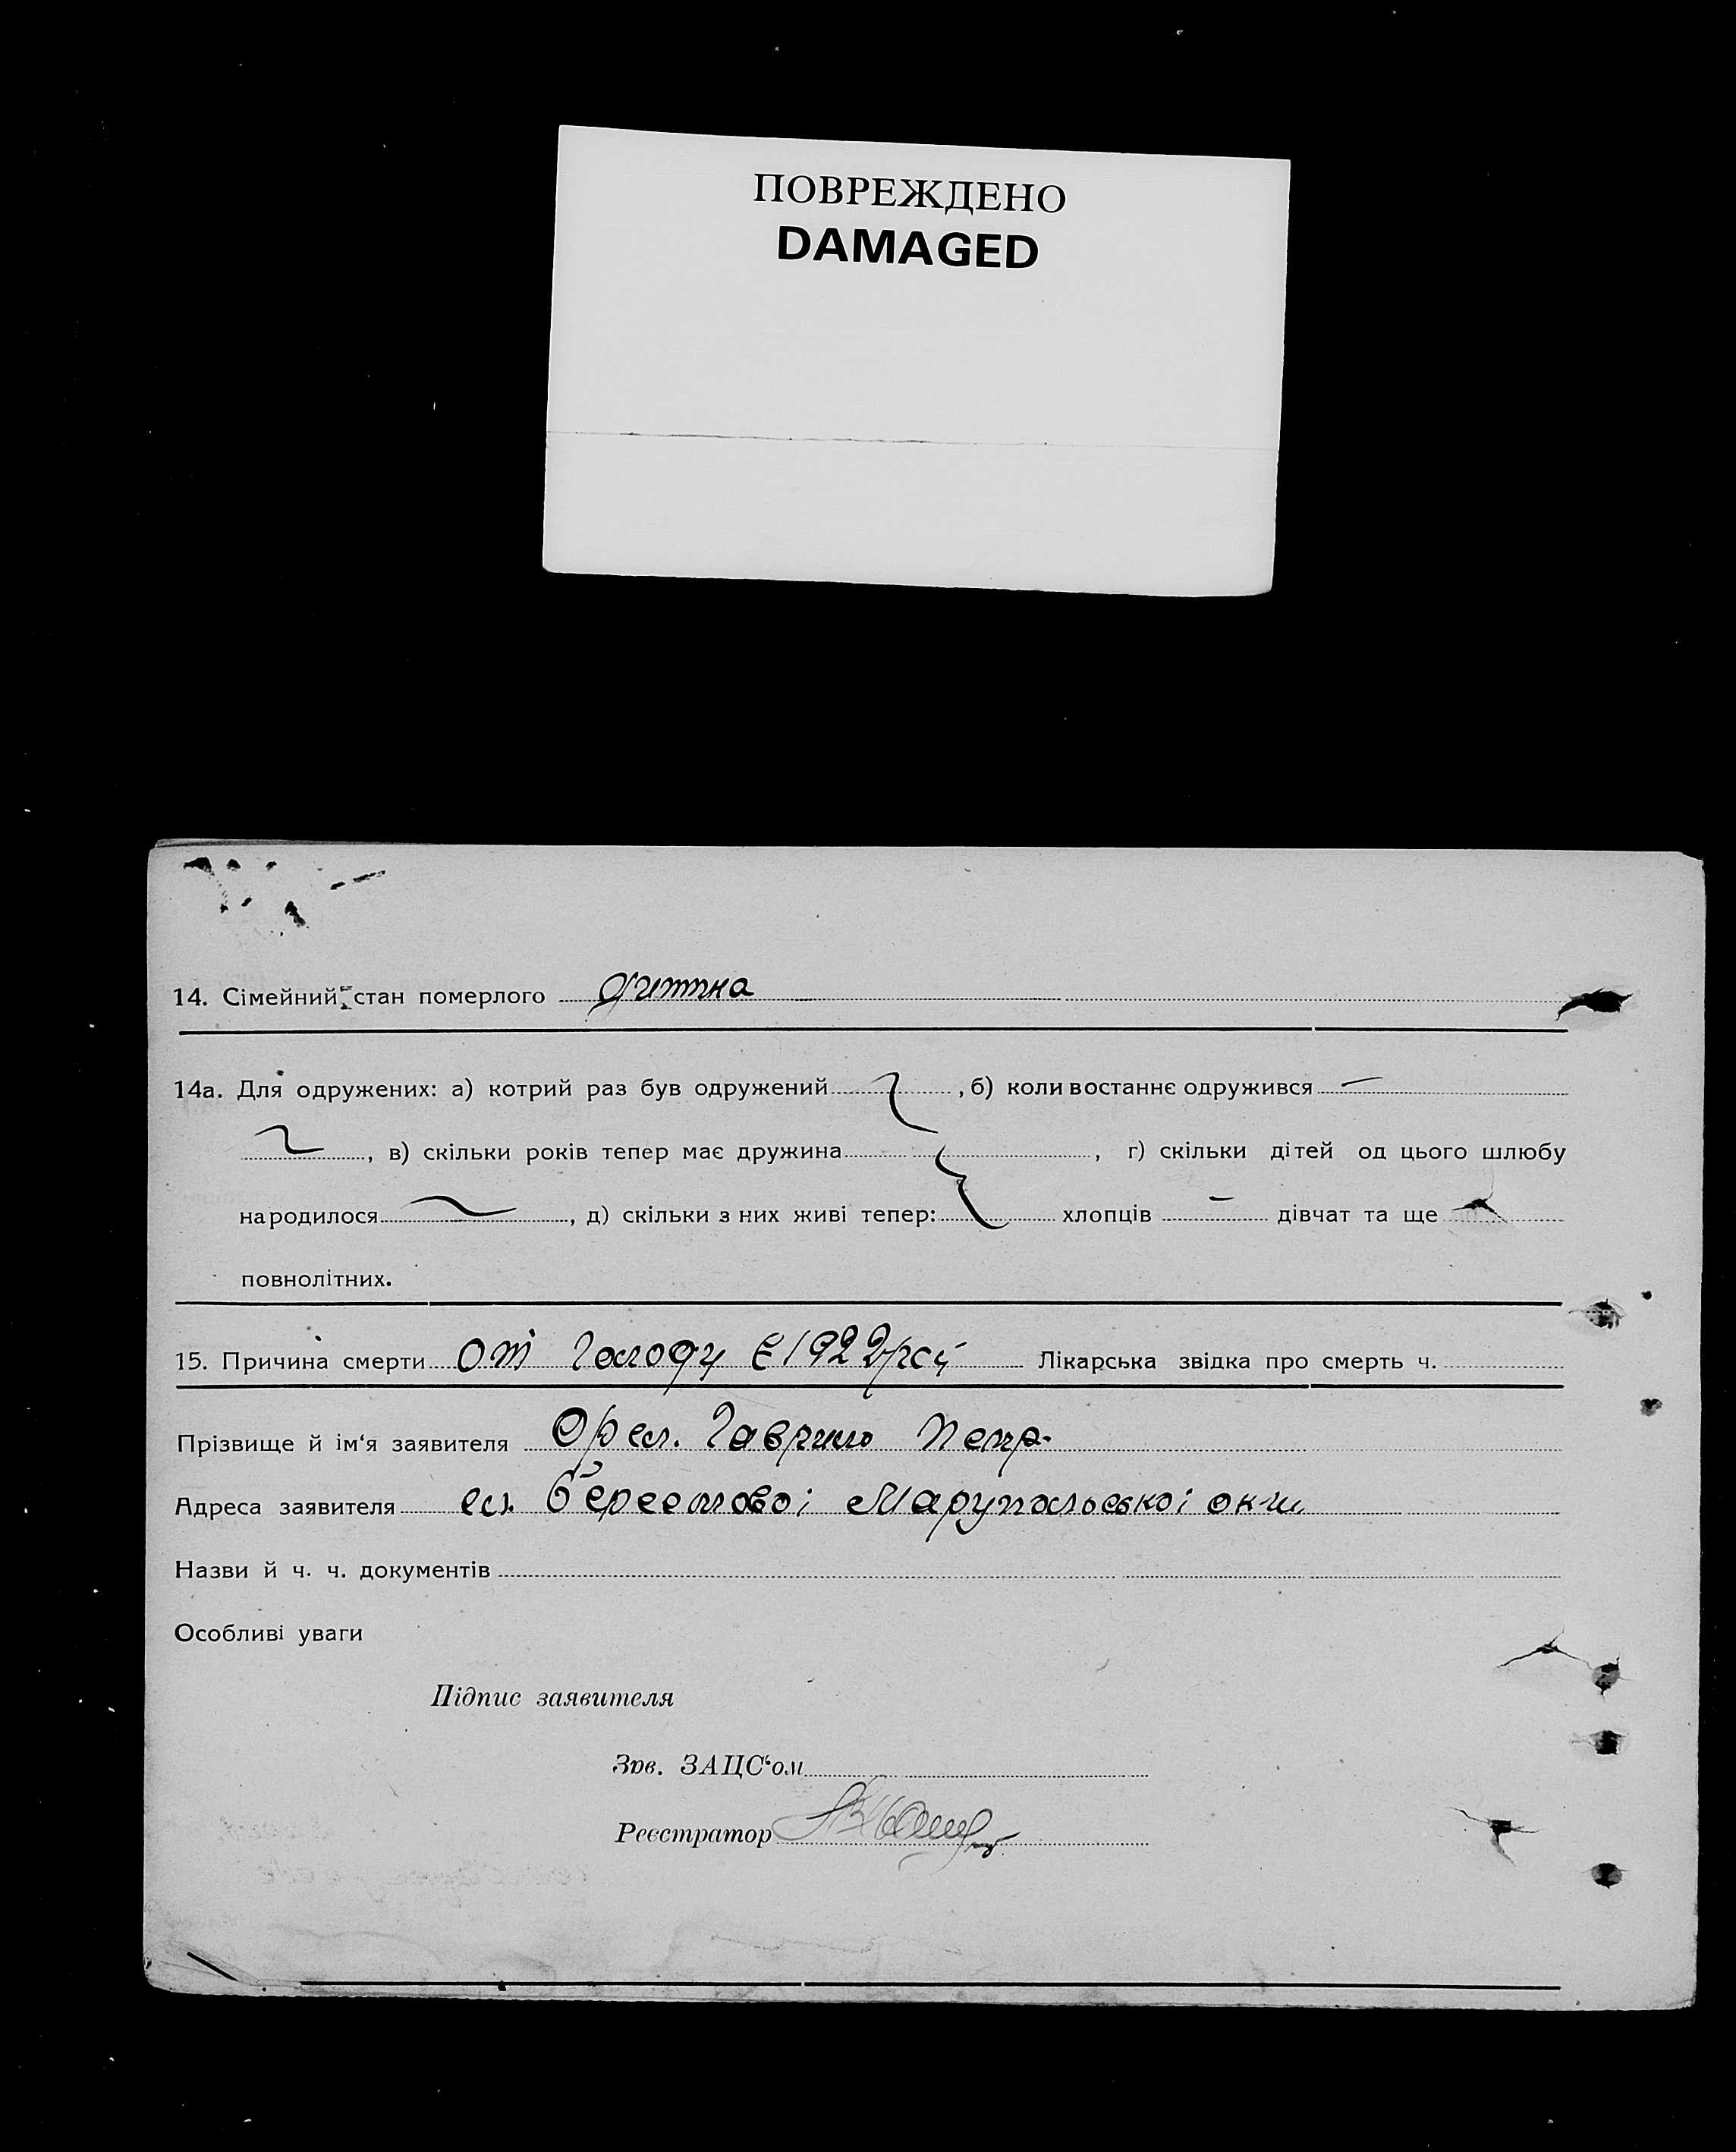 ПОВРЕЖДЕНО
DAMAGED
14. Сімейний стан померлого дитина
14а. Для одружених: а) котрий раз був одружений , б) коли востаннє одружився —
, в) скільки років тепер має дружина , г) скільки дітей од цього шлюбу
народилося , д) скільки з них живі тепер: хлопців — дівчат та ще
повнолітних.
15. Причина смерти от голоду 1922 Лікарська звідка про смерть ч.
Прізвище й ім‘я заявителя Орел. Гаврило Петр.
Адреса заявителя ел. Берестової Марупольської
Назви й ч. ч. документів
Особливі уваги
Підпис заявителя
Зав. ЗАЦС‘ом
Реєстратор